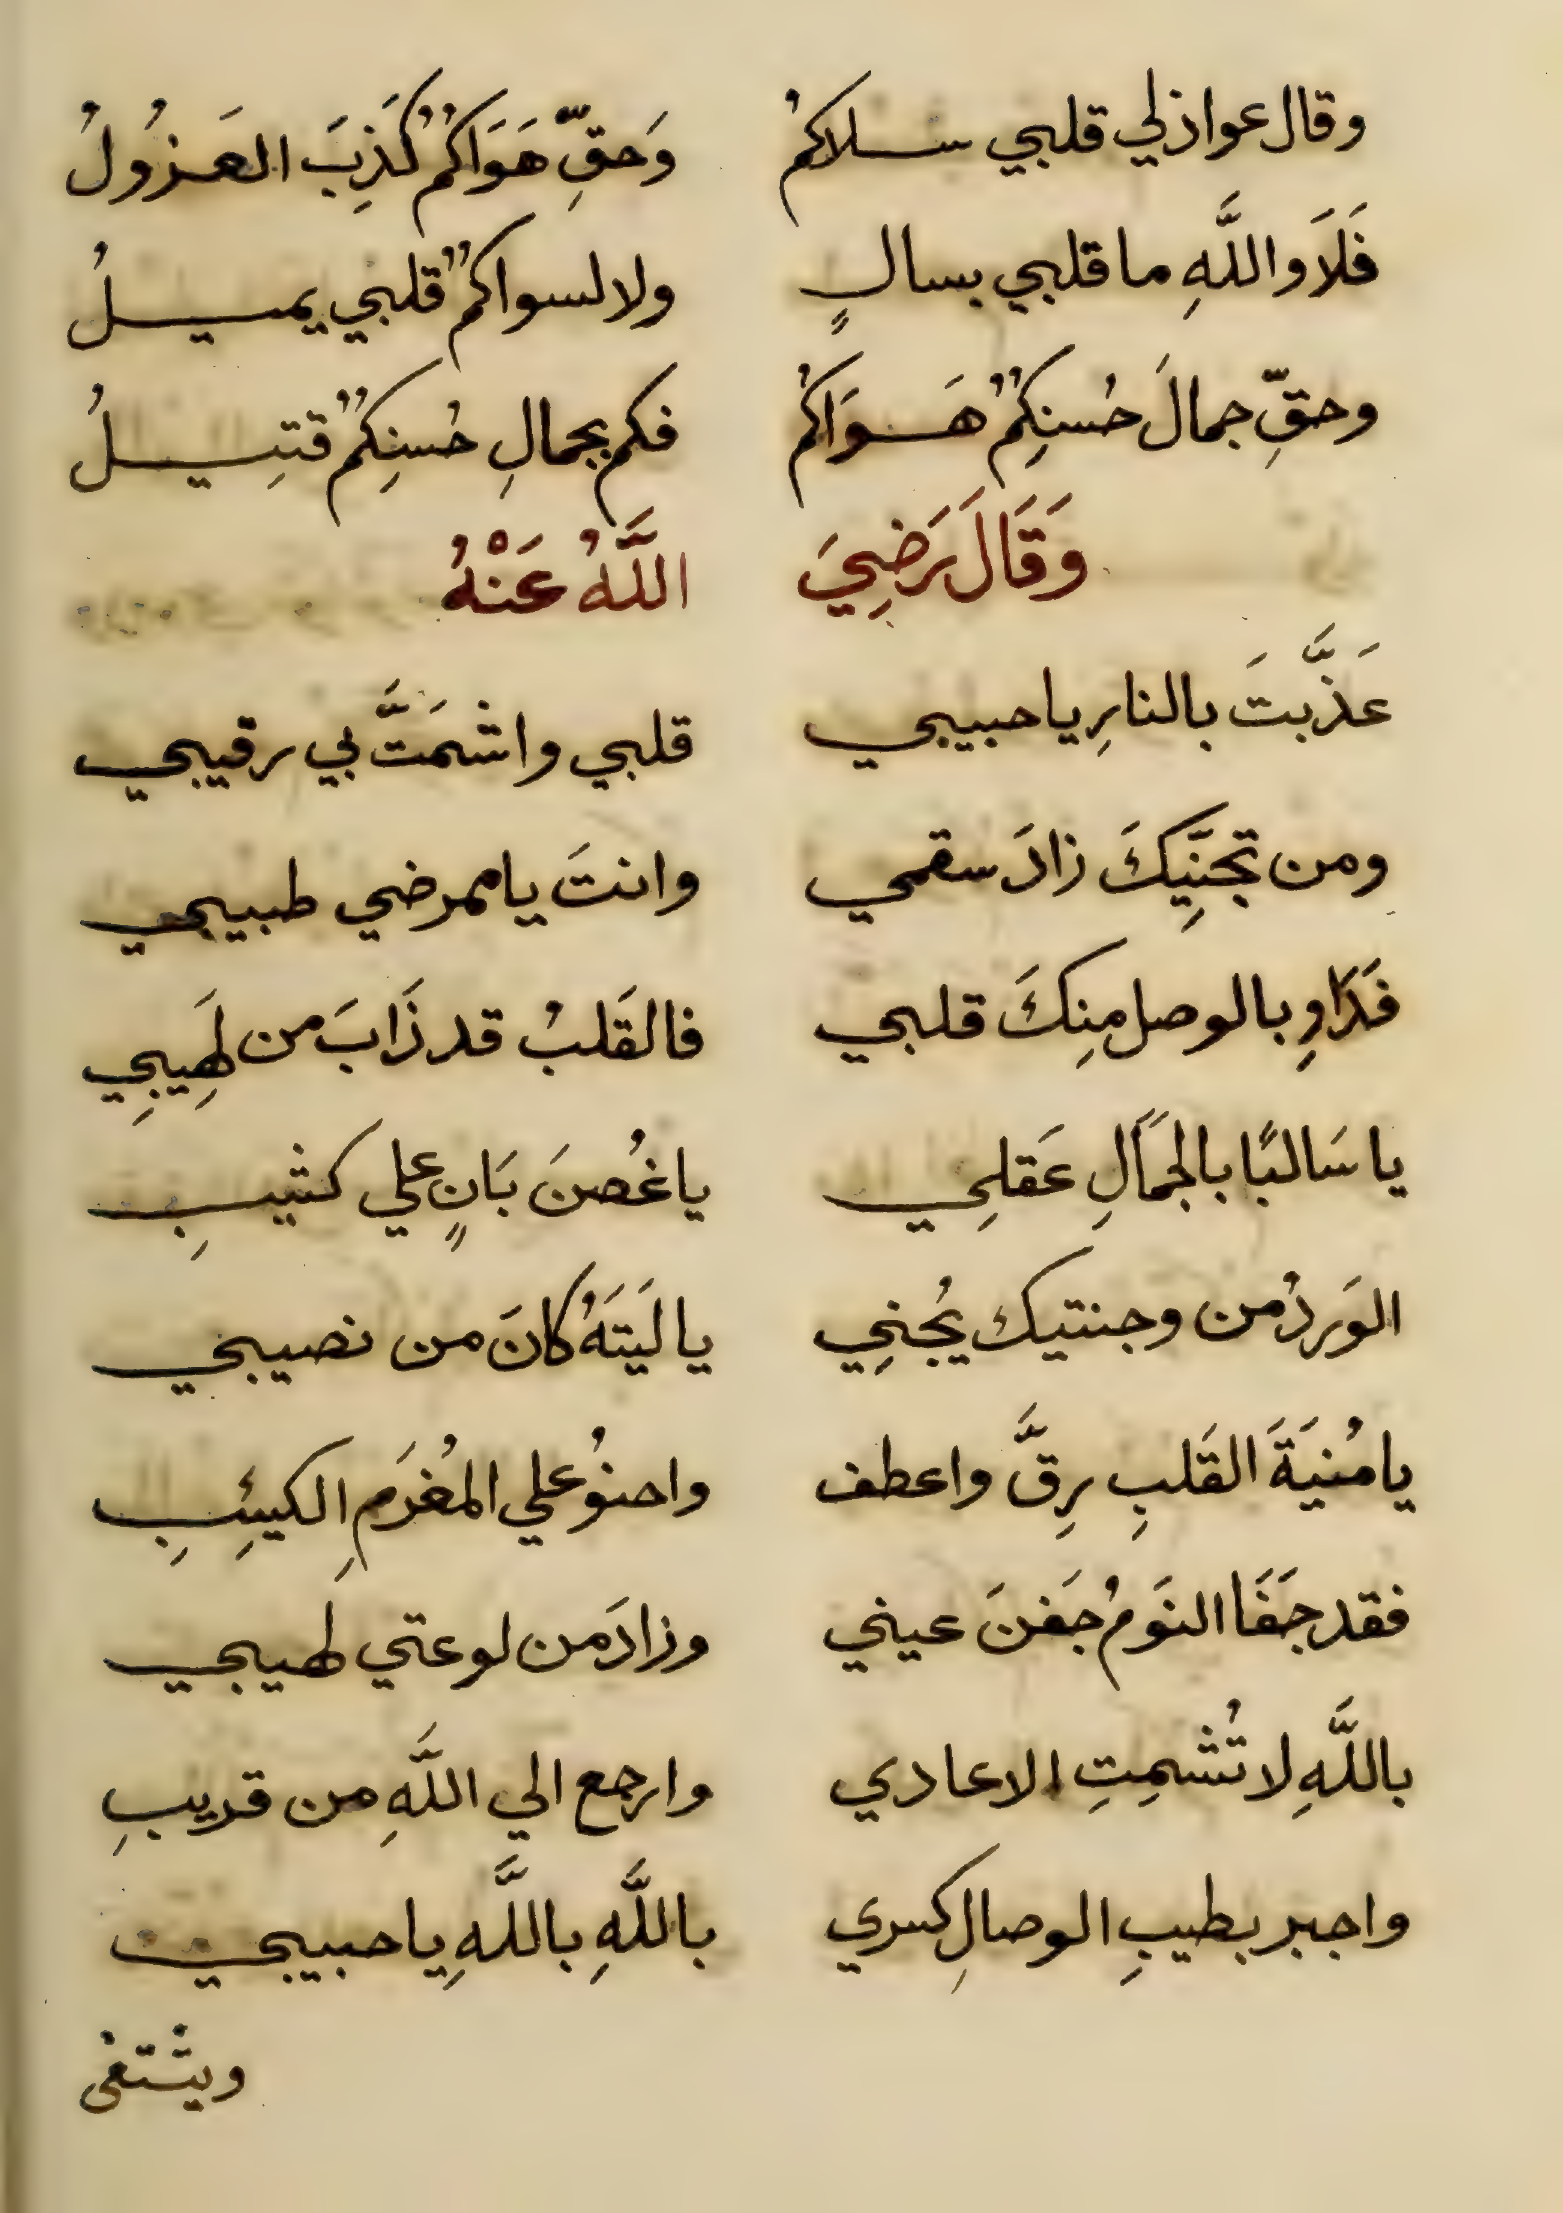 وقال عواذلي قلبي سلاكمُ وَحقِّ هَوَاكمُ كَذِبَ العَزُولُ
فَلَا واللَّهِ ما قلبي بسالٍ ولا لسواكمُ قلبي يميلُ
وحقِّ جمالَ حُسنِكمُ هَوَاكمُ فكم بجمالِ حُسنِكمُ قتِيلُ
وَقَالَ رَضِيَ اللَّهُ عَنْهُ
عَذَّبتَ بالنارِ يا حبيبي قلبي واشمَتَّ بي رقيبي
ومن تجنِّيكَ زادَ سقمي وانتَ يا ممرضي طبيبي
فَدَاوِ بالوصل مِنكَ قلبي فالقَلبُ قد ذَابَ من لَهِيبِي
يا سَالبًا بالجَمَالِ عَقلِي يا غُصنَ بَانٍ علي كثيبِ
الوَردُ من وجنتيك يُجنِي يا لَيتَهُ كانَ من نصيبي
يا مُنيَةَ القَلبِ رِقَّ واعطف واحنُو علي المُغرَمِ الكيئِبِ
فقد جَفَا النَومُ جَفنَ عيني وزادَ من لوعتي لهيبي
باللَّهِ لا تُشمِتِ الاعادي وارجع الي اللَّهِ من قريبِ
واجبر بطيبِ الوصالِ كسري باللَّهِ باللَّهِ يا حبيبي